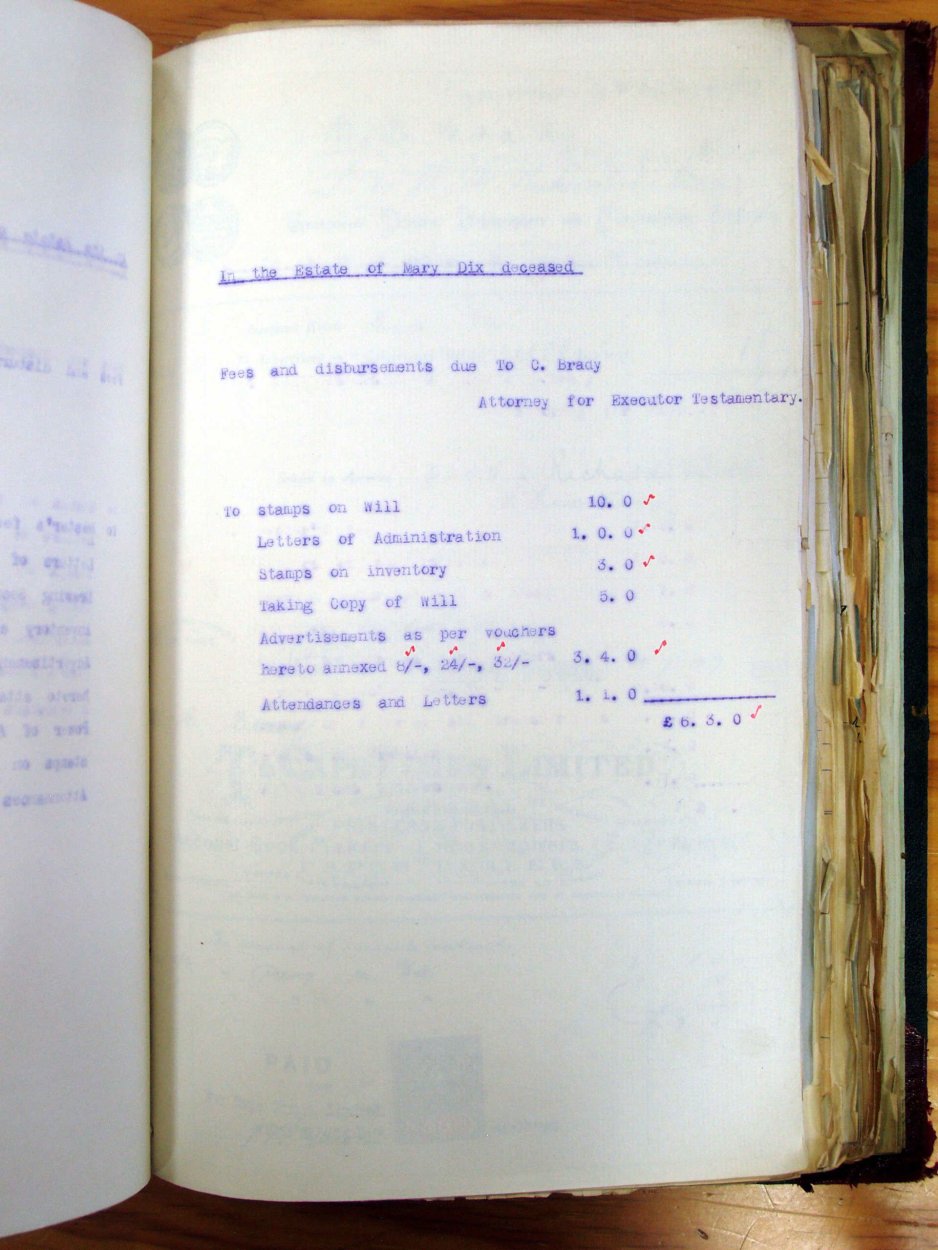 In the Estate of Mary Dix deceased
Fees and disbursements due To C. Brady
Attorney for Executor Testamentary.
To stamps on Will 10. 0
Letters of Administration 1. 0. 0
Stamps on inventory 3. 0
Taking Copy of Will 5. 0
Advertisements as per vouchers
hereto annexed 8/-, 24/-, 32/- 3. 4. 0
Attendances and Letters 1. 1. 0
£ 6. 3. 0